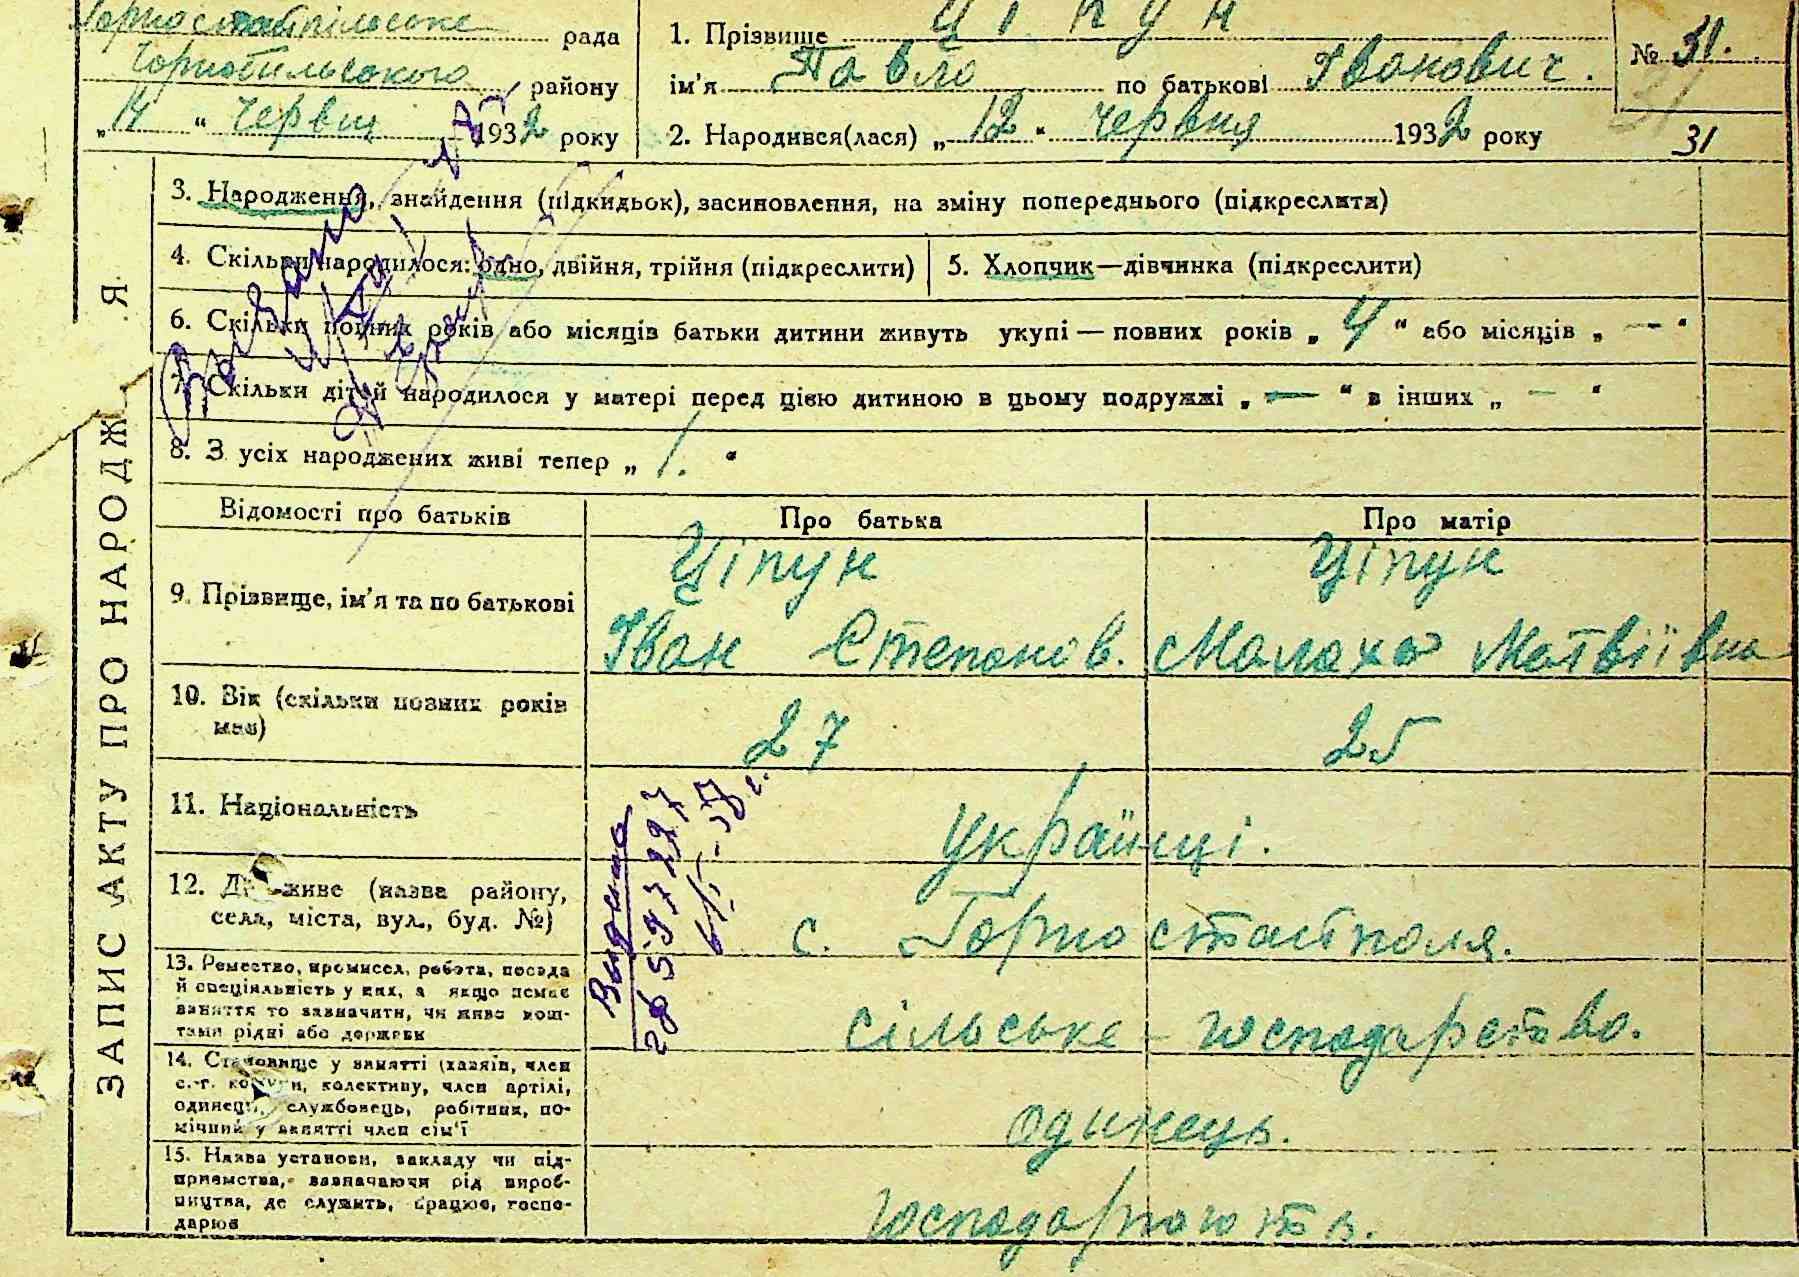 Горностайпільське рада
Чорнобильського району
„14" червня 1932 року
1. Прізвище Ціпун
ім'я Павло по батькові Іванович.
2. Народився(лася) „12" червня 1932 року
№ 31.
31
31
ЗАПИС АКТУ ПРО НАРОДЖ Я
3. Народження, знайдення (підкидьок), засиновлення, на зміну попереднього (підкреслити)
4. Скільки народилося: одно, двійня, трійня (підкреслити)
5. Хлопчик—дівчинка (підкреслити)
6. Скільки повних років або місяців батьки дитини живуть укупі — повних років „4" або місяців „—"
7. Скільки дітей народилося у матері перед цією дитиною в цьому подружжі „—" в інших „—"
8. З усіх народжених живі тепер „1."
Відомості про батьків
Про батька
Про матір
9. Прізвище, ім'я та по батькові
Ціпун
Іван Степанов.
Ціпун
Малаха Матвіївна
10. Вік (скільки повних років
має)
27
25
11. Національність
українці.
12. Де живе (назва району,
села, міста, вул., буд. №)
с. Горностайполя.
13. Ремество, промисел, робота, посада
й спеціальність у них, а якщо немає
заняття то зазначити, чи живе кош-
тами рідні або держави
сільське - господарство.
14. Становище у занятті (хазяїн, член
с.-г. комуни, колективу, член артілі,
одинець, службовець, робітник, по-
мічний у занятті член сім'ї
одинець.
15. Назва установи, закладу чи під-
приємства, зазначаючи рід вироб-
ництва, де служить, працює, госпо-
дарює